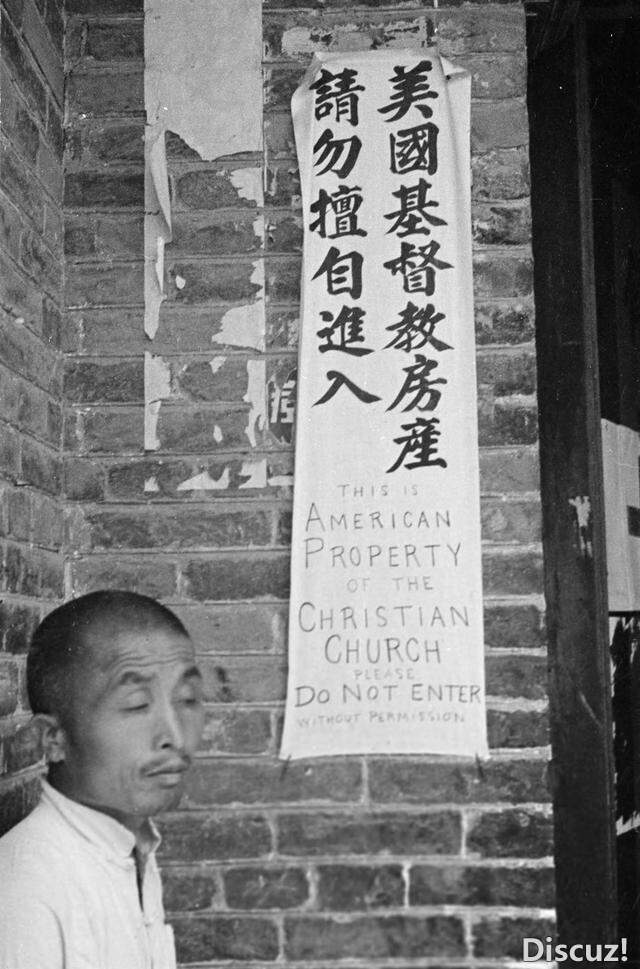 美國基督教房產
請勿擅自進入
THIS IS
AMERICAN
PROPERTY
OF THE
CHRISTIAN
CHURCH
PLEASE
DO NOT ENTER
WITHOUT PERMISSION
Discuz!